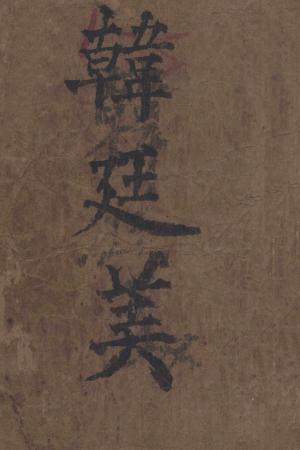 韓廷美